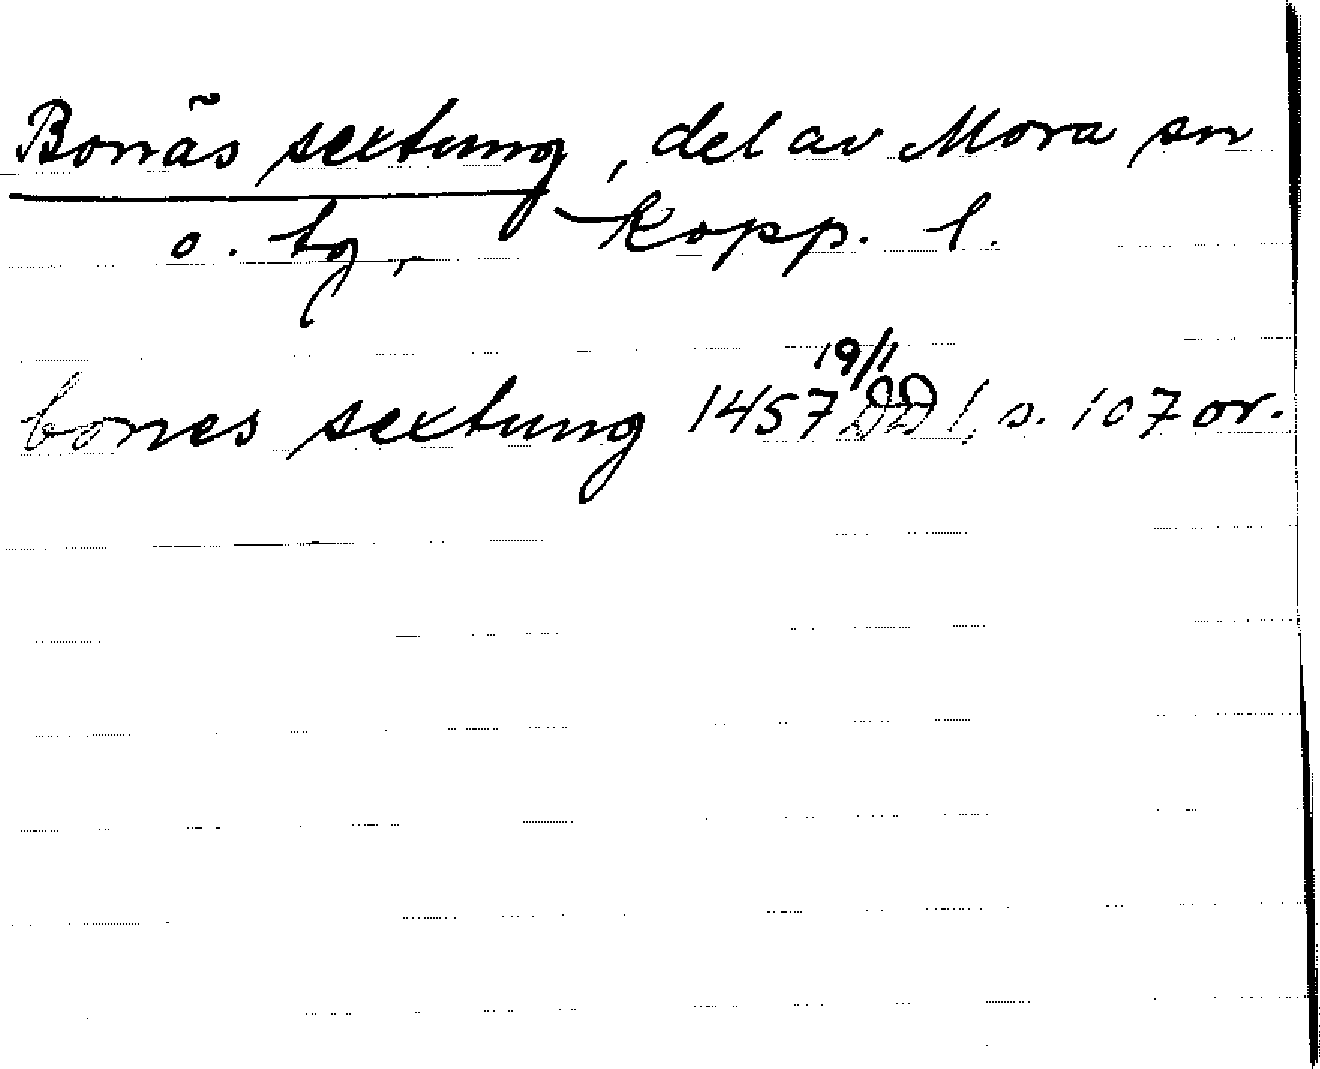 Bonäs sextung, del av Mora sn
o. tg, Kopp. l.
bones sextung 1457 19/1 DD 1, s. 107 or.